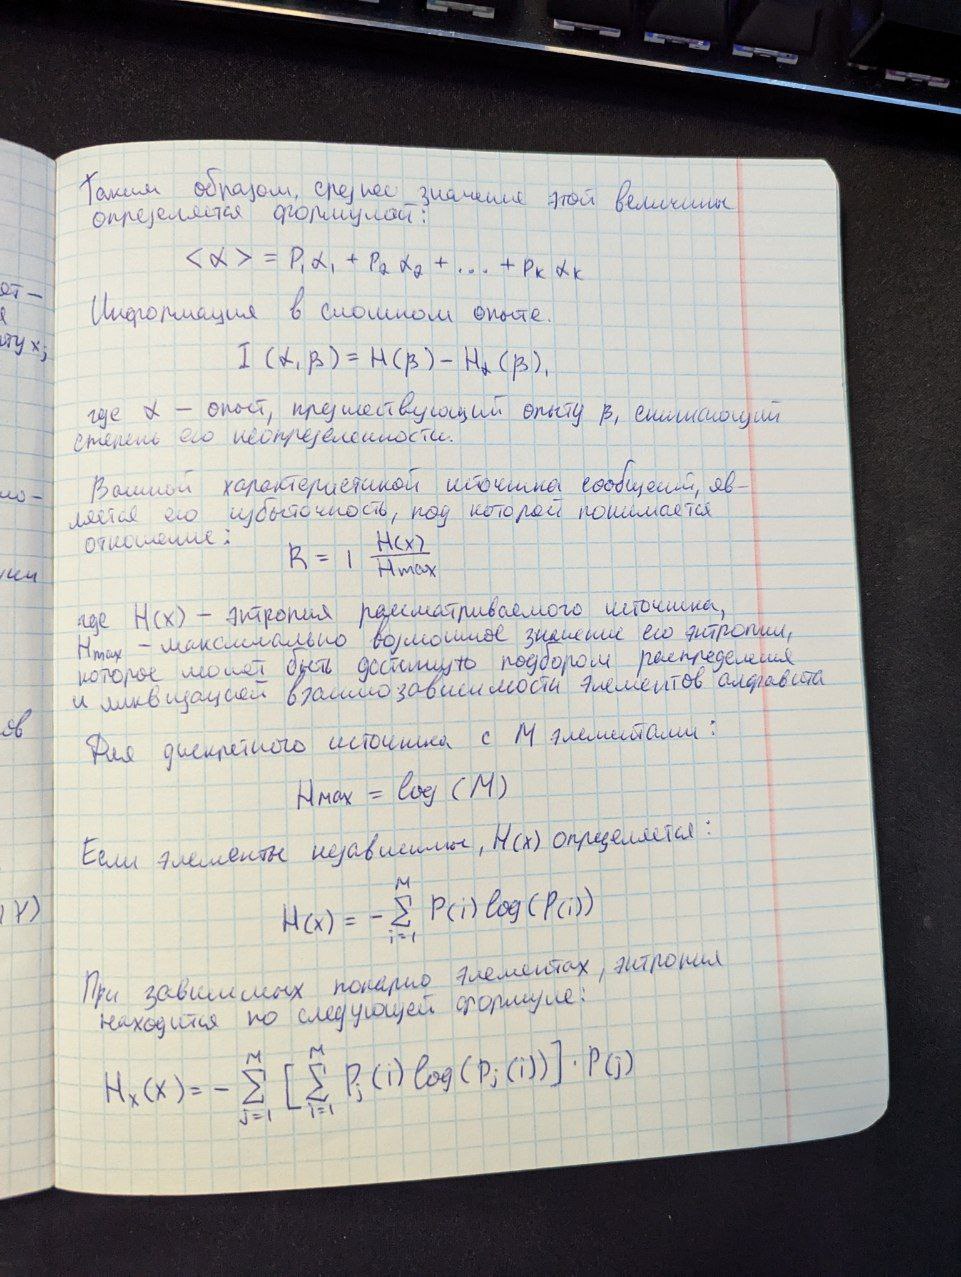 Таким образом, среднее значение этой величины
определяется формулой:
<α> = P₁α₁ + P₂α₂ + ... + Pₖαₖ
ет-
я
ту xⱼ
Информация в сложном опыте.
I (α, β) = H(β) - Hα(β),
где α - опыт, предшествующий опыту β, снижающий
степень его неопределенности.
Важной характеристикой источника сообщений, яв-
ляется его избыточность, под которой понимается
отношение:
R = 1 H(x)/Hmax
где H(x) - энтропия рассматриваемого источника,
Hmax - максимально возможное значение его энтропии,
которое может быть достигнуто подбором распределения
и ликвидацией взаимозависимости элементов алфавита
ов
Для дискретного источника с M элементами:
Hmax = log (M)
Если элементы независимы, H(x) определяется:
H(x) = - ∑ᵢ₌₁ᴹ P(i) log(P(i))
При зависимых попарно элементах, энтропия
находится по следующей формуле:
Hₓ(x) = - ∑ⱼ₌₁ᴹ [∑ᵢ₌₁ᴹ Pⱼ(i) log(Pⱼ(i))] · P(j)